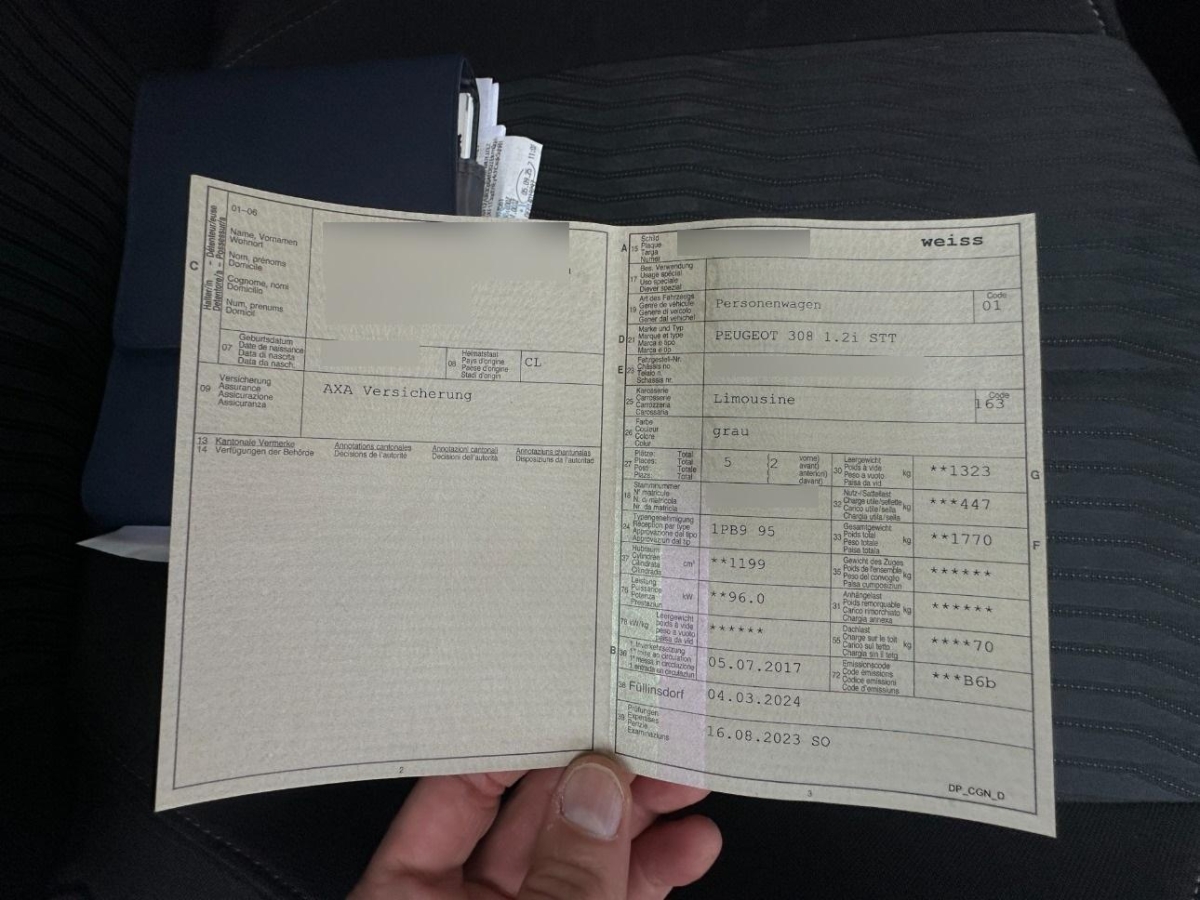 05.09.25 / 11:0
C
Halter/in - Détenteur/euse
Detentore/a - Possessur/a
01–06
Name, Vornamen
Wohnort
Nom, prénoms
Domicile
Cognome, nomi
Domicilio
Num, prenums
Domicil
07
Geburtsdatum
Date de naissance
Data di nascita
Data da nasch.
08
Heimatstaat
Pays d'origine
Paese d'origine
Stadi d'origin
CL
09
Versicherung
Assurance
Assicurazione
Assicuranza
AXA Versicherung
13 Kantonale Vermerke
14 Verfügungen der Behörde
Annotations cantonales
Décisions de l'autorité
Annotazioni cantonali
Decisioni dell'autorità
Annotaziuns chantunalas
Disposiziuns da l'autoritad
2
A 15
Schild
Plaque
Targa
Numer
weiss
17
Bes. Verwendung
Usage spécial
Uso speciale
Diever spezial
19
Art des Fahrzeugs
Genre de véhicule
Genere di veicolo
Gener dal vehichel
Personenwagen
Code
01
D 21
Marke und Typ
Marque et type
Marca e tipo
Marca e tip
PEUGEOT 308 1.2i STT
E 23
Fahrgestell-Nr.
Châssis no
Telaio n.
Schassis nr.
25
Karosserie
Carrosserie
Carrozzeria
Carossaria
Limousine
Code
163
26
Farbe
Couleur
Colore
Colur
grau
27
Plätze: Total
Places: Total
Posti: Totale
Plazs: Total
5
2
vorne)
avant)
anteriori)
davant)
30
Leergewicht
Poids à vide
Peso a vuoto
Paisa da vid
kg
**1323
G
18
Stammnummer
N° matricule
N. di matricola
Nr. da matricla
32
Nutz-/Sattellast
Charge utile/sellette
Carico utile/sella
Chargia utila/sella
kg
***447
24
Typengenehmigung
Réception par type
Approvazione del tipo
Approvaziun dal tip
1PB9 95
33
Gesamtgewicht
Poids total
Peso totale
Paisa totala
kg
**1770
F
37
Hubraum
Cylindrée
Cilindrata
Cilindrada
cm³
**1199
35
Gewicht des Zuges
Poids de l'ensemble
Peso del convoglio
Paisa cumposiziun
kg
******
76
Leistung
Puissance
Potenza
Prestaziun
kW
**96.0
31
Anhängelast
Poids remorquable
Carico rimorchiato
Chargia annexa
kg
******
78 kW/kg
Leergewicht
poids à vide
peso a vuoto
paisa da vid
******
55
Dachlast
Charge sur le toit
Carico sul tetto
Chargia sin il tetg
kg
****70
B 36
1. Inverkehrsetzung
1re mise en circulation
1a messa in circolazione
1. entrada en circulaziun
05.07.2017
72
Emissionscode
Code émissions
Codice emissioni
Code d'emissiuns
***B6b
38 Füllinsdorf
04.03.2024
39
Prüfungen
Expertises
Perizie
Examinaziuns
16.08.2023 SO
3
DP_CGN_D